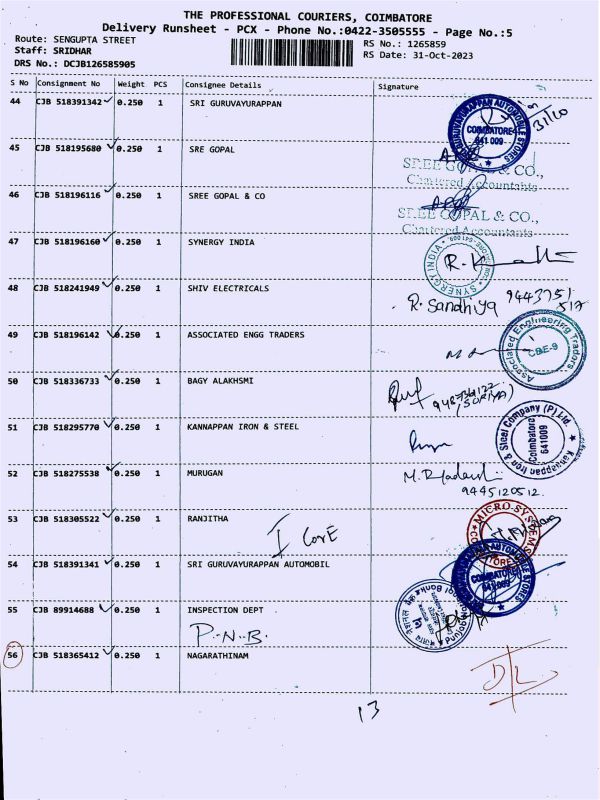 THE PROFESSIONAL COURIERS, COIMBATORE
Delivery Runsheet - PCX - Phone No.:0422-3505555 - Page No.:5
Route: SENGUPTA STREET
Staff: SRIDHAR
DRS No.: DCJB126585905
RS No.: 1265859
RS Date: 31-Oct-2023
S No Consignment No Weight PCS Consignee Details Signature
44 CJB 518391342 ✓ 0.250 1 SRI GURUVAYURAPPAN
GURUVAYURAPPAN AUTOMOBILE STORES COIMBATORE 641 009 31/10
45 CJB 518195680 ✓ 0.250 1 SRE GOPAL
SREE GOPAL & CO.,
Chartered Accountants
46 CJB 518196116 ✓ 0.250 1 SREE GOPAL & CO
SREE GOPAL & CO.,
Chartered Accountants
47 CJB 518196160 ✓ 0.250 1 SYNERGY INDIA
SYNERGY INDIA
48 CJB 518241949 ✓ 0.250 1 SHIV ELECTRICALS
R. Sandhiya 9443751
517
49 CJB 518196142 ✓ 0.250 1 ASSOCIATED ENGG TRADERS
Associated Engineering Traders CBE-9
50 CJB 518336733 ✓ 0.250 1 BAGY ALAKHSMI
51 CJB 518295770 ✓ 0.250 1 KANNAPPAN IRON & STEEL
Kanappan Iron & Steel Company (P) Ltd. Coimbatore 641009
52 CJB 518275538 ✓ 0.250 1 MURUGAN
9445120512
53 CJB 518305522 ✓ 0.250 1 RANJITHA
I CORE
MICRO SYSTEMS
54 CJB 518391341 ✓ 0.250 1 SRI GURUVAYURAPPAN AUTOMOBIL
GURUVAYURAPPAN AUTOMOBILE STORES COIMBATORE 641 009
55 CJB 89914688 ✓ 0.250 1 INSPECTION DEPT
P.N.B.
56 CJB 518365412 ✓ 0.250 1 NAGARATHINAM
D/L
13